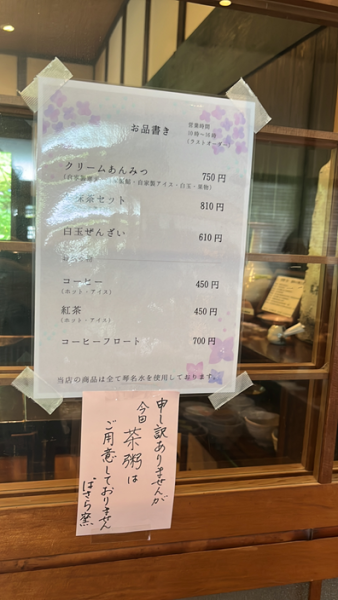 お品書き
営業時間
10時〜16時
(ラストオーダー)
クリームあんみつ 750円
・自家製アイス・白玉・果物)
抹茶セット 810円
白玉ぜんざい 610円
コーヒー 450円
(ホット・アイス)
紅茶 450円
(ホット・アイス)
コーヒーフロート 700円
当店の商品は全て
名水を使用しております。
申し訳ありませんが
今回 茶粥は
ご用意しておりません
ぼさら窯